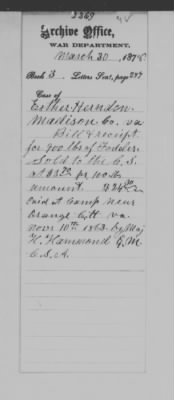 2269
Archive Office,
WAR DEPARTMENT,
March 30, 1878
Book 3. Letters Sent, page 247
Case of
Esther Herndon
Madison Co. Va
Bill & receipt
for 900 lbs of Fodder
Sold to the C.S.
at pr 100 lbs
amount $24
Paid at Camp near
Orange C.H. Va.
Novr 10th 1863 by Maj
H. Hammond Q.M.
C.S.A.